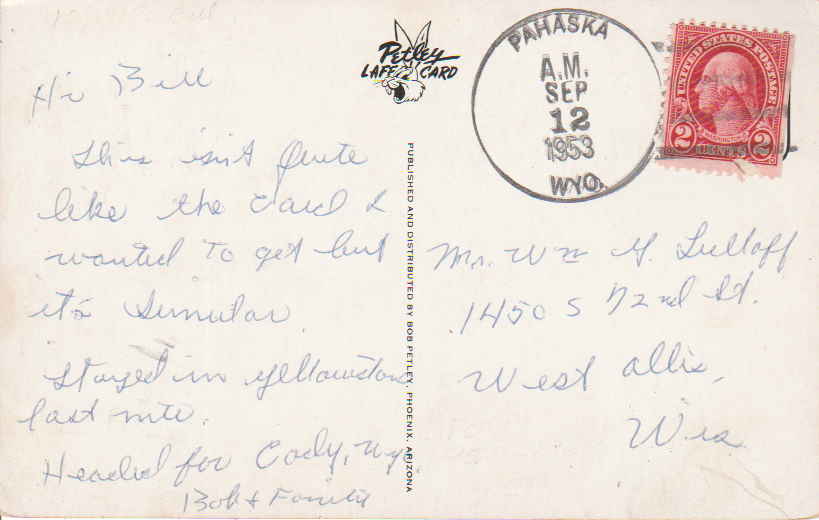 Hi Bill
This isn't Quite
like the card I
wanted to get but
it's Simular.
Stayed in Yellowstone
last nite.
Headed for Cody, Wy.
Bob & Family
Petley
LAFF CARD
PUBLISHED AND DISTRIBUTED BY BOB PETLEY, PHOENIX, ARIZONA
PAHASKA
A.M.
SEP
12
1953
WYO.
UNITED STATES POSTAGE
WASHINGTON
2 CENTS 2
Mr. Wm G.
1450 S 72nd St.
West Allis,
Wis